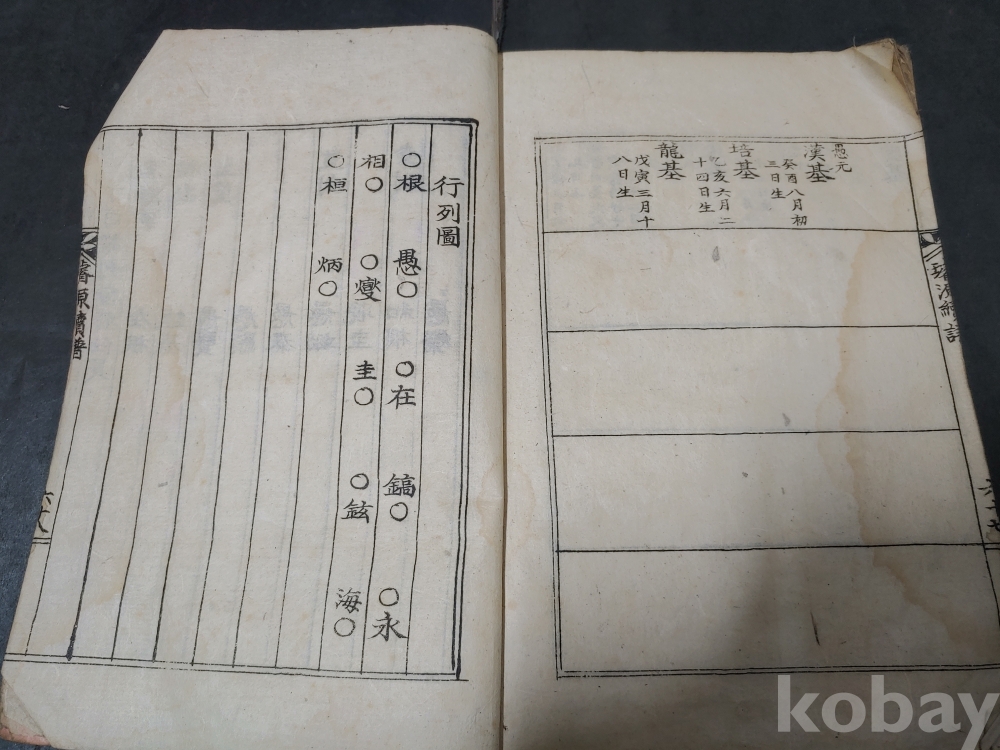 愚元
漢基
癸酉八月初
三日生
培基
乙亥六月二
十四日生
龍基
戊寅三月十
八日生
行列圖
○根 愚○ ○在 鎬○ ○永
相○ ○燮 圭○ ○鉉
○桓 炳○ 海○
璿源續譜
六十八
kobay